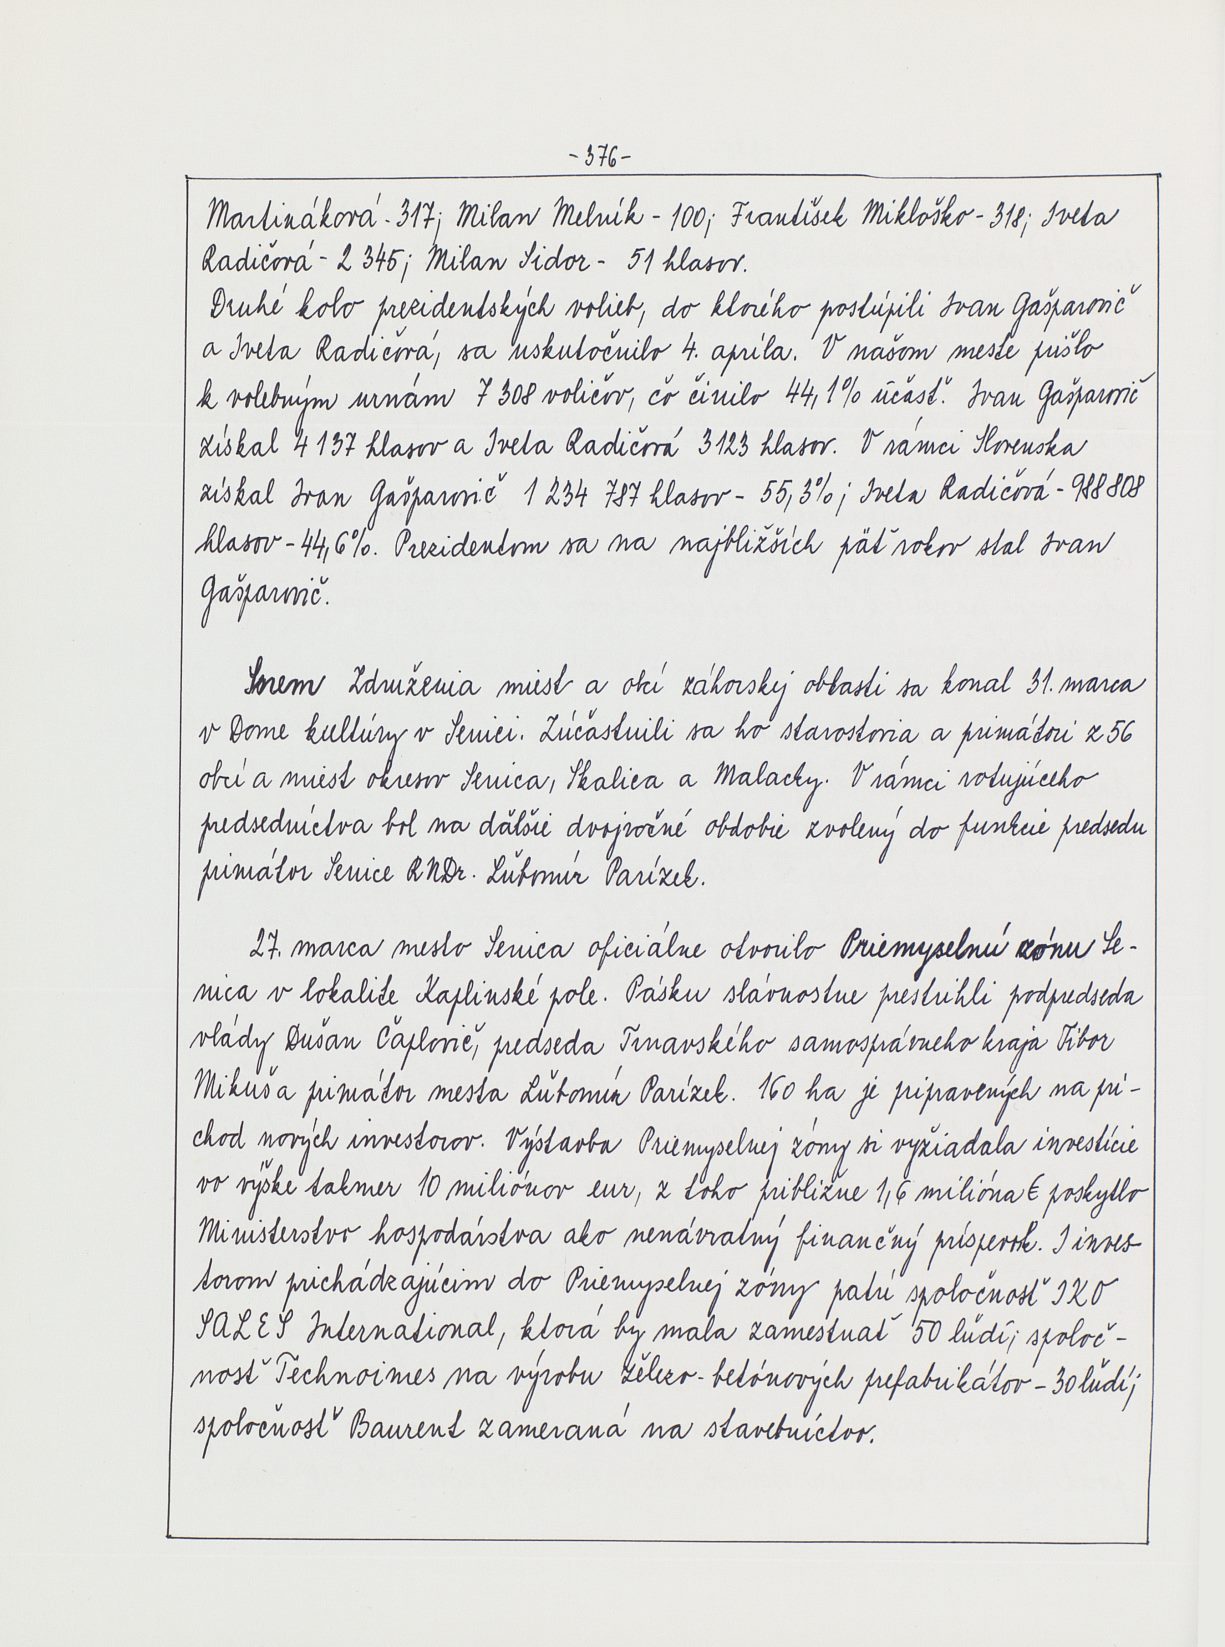 -376-
Martináková - 317; Milan Melník - 100; František Mikloško - 318; Iveta
Radičová - 2 345; Milan Sidor - 51 hlasov.
Druhé kolo prezidentských volieb, do ktorého postúpili Ivan Gašparovič
a Iveta Radičová, sa uskutočnilo 4. apríla. V našom meste prišlo
k volebným urnám 7 308 voličov, čo činilo 44,1% účasť. Ivan Gašparovič
získal 4 137 hlasov a Iveta Radičová 3123 hlasov. V rámci Slovenska
získal Ivan Gašparovič 1 234 787 hlasov - 55,3%; Iveta Radičová - 988 808
hlasov - 44,6%. Prezidentom sa na najbližších päť rokov stal Ivan
Gašparovič.
Snem Združenia miest a obcí záhorskej oblasti sa konal 31. marca
v Dome kultúry v Senici. Zúčastnili sa ho starostovia a primátori z 56
obcí a miest okresov Senica, Skalica a Malacky. V rámci rotujúceho
predsedníctva bol na ďalšie dvojročné obdobie zvolený do funkcie predsedu
primátor Senice RNDr. Ľubomír Parízek.
27. marca mesto Senica oficiálne otvorilo Priemyselnú zónu Se-
nica v lokalite Kaplinské pole. Pásku slávnostne prestrihli podpredseda
vlády Dušan Čaplovič, predseda Trnavského samosprávneho kraja Tibor
Mikuš a primátor mesta Ľubomír Parízek. 160 ha je pripravených na prí-
chod nových investorov. Výstavba Priemyselnej zóny si vyžiadala investície
vo výške takmer 10 miliónov eur, z toho približne 1,6 milióna € poskytlo
Ministerstvo hospodárstva ako nenávratný finančný príspevok. I inves-
torom prichádzajúcim do Priemyselnej zóny patrí spoločnosť IKO
SALES International, ktorá by mala zamestnať 50 ľudí; spoloč-
nosť Technoimes na výrobu železo-betónových prefabrikátov - 30 ľudí;
spoločnosť Baurent zameraná na stavebníctvo.